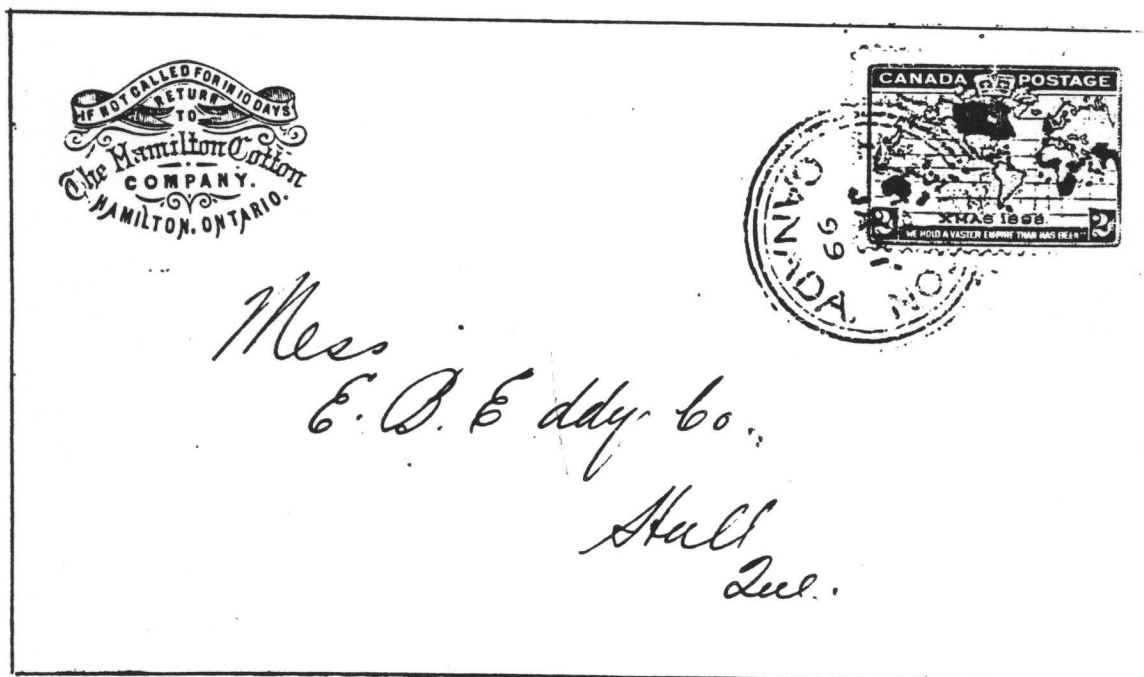 IF NOT CALLED FOR IN 10 DAYS
RETURN
TO
The Hamilton Cotton
COMPANY.
HAMILTON, ONTARIO.
CANADA POSTAGE
XMAS 1898
2 2
WE HOLD A VASTER EMPIRE THAN HAS BEEN
CANADA
99
Mess
E. B. Eddy Co.,
Hull
Que.